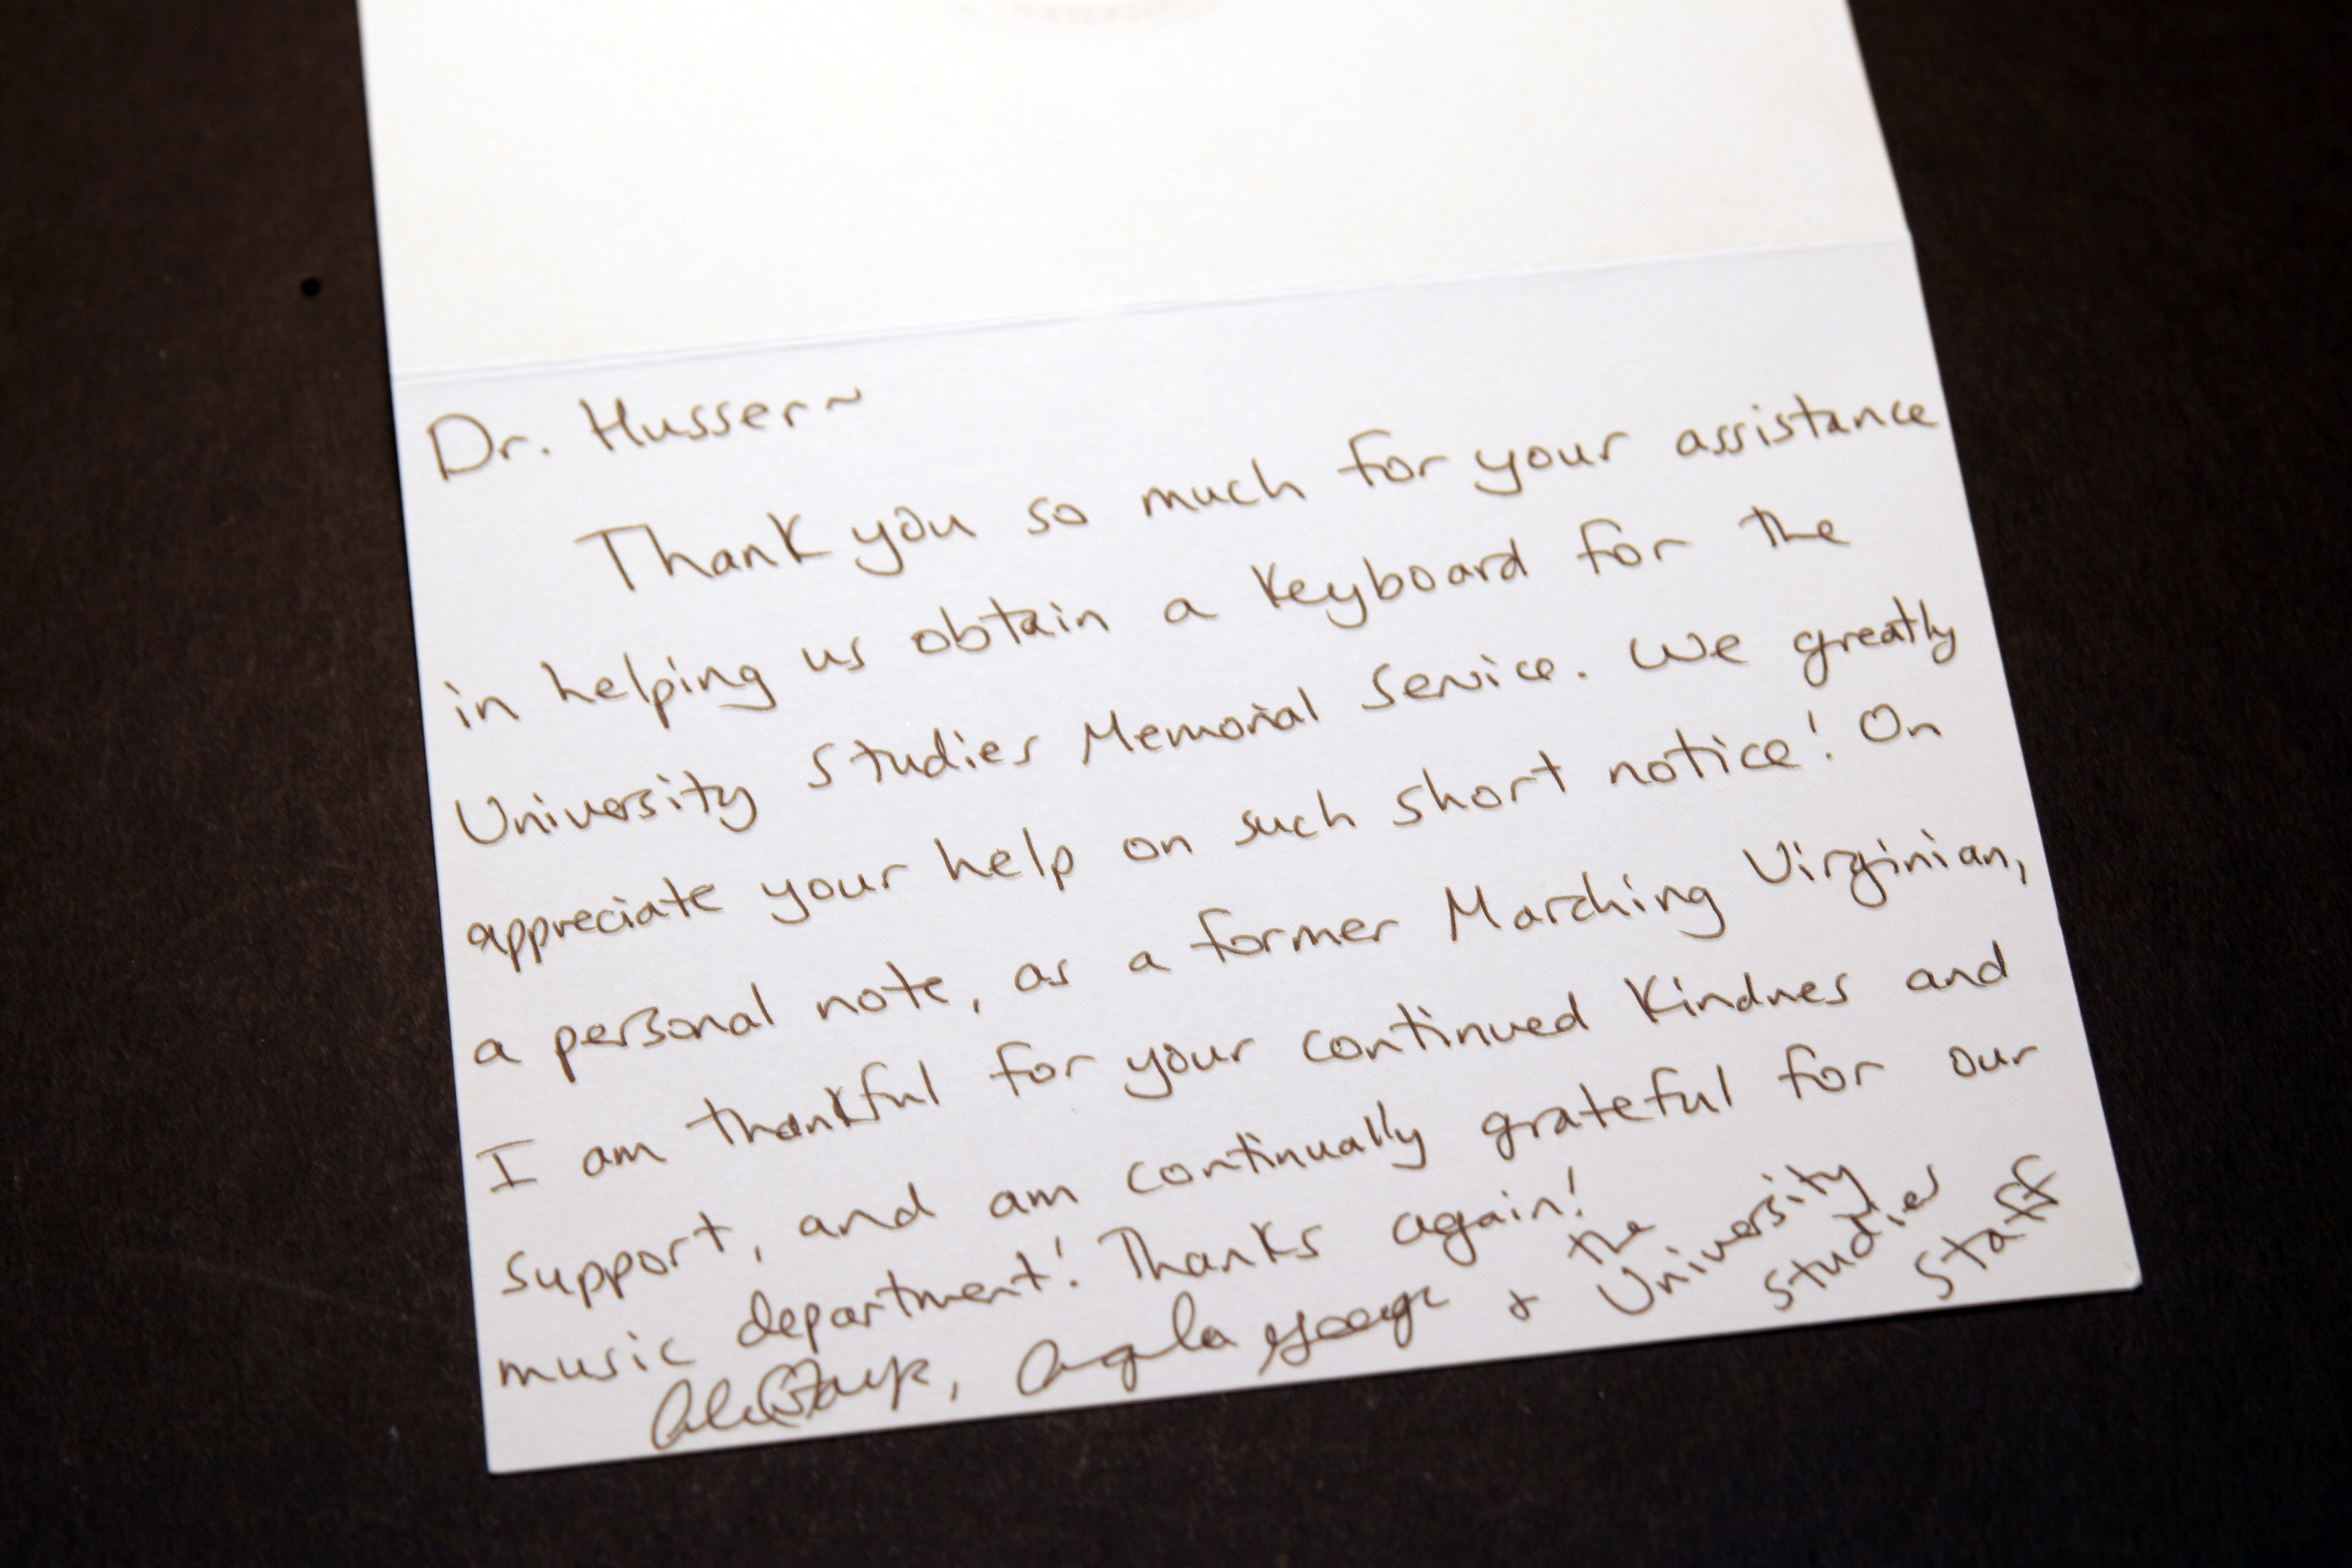 Dr. Husser~
Thank you so much for your assistance
in helping us obtain a Keyboard for the
University Studies Memorial Service. We greatly
appreciate your help on such short notice! On
a personal note, as a former Marching Virginian,
I am thankful for your continued Kindnes and
support, and am continually grateful for our
music department! Thanks again!
Angela George & the University
Studies
Staff